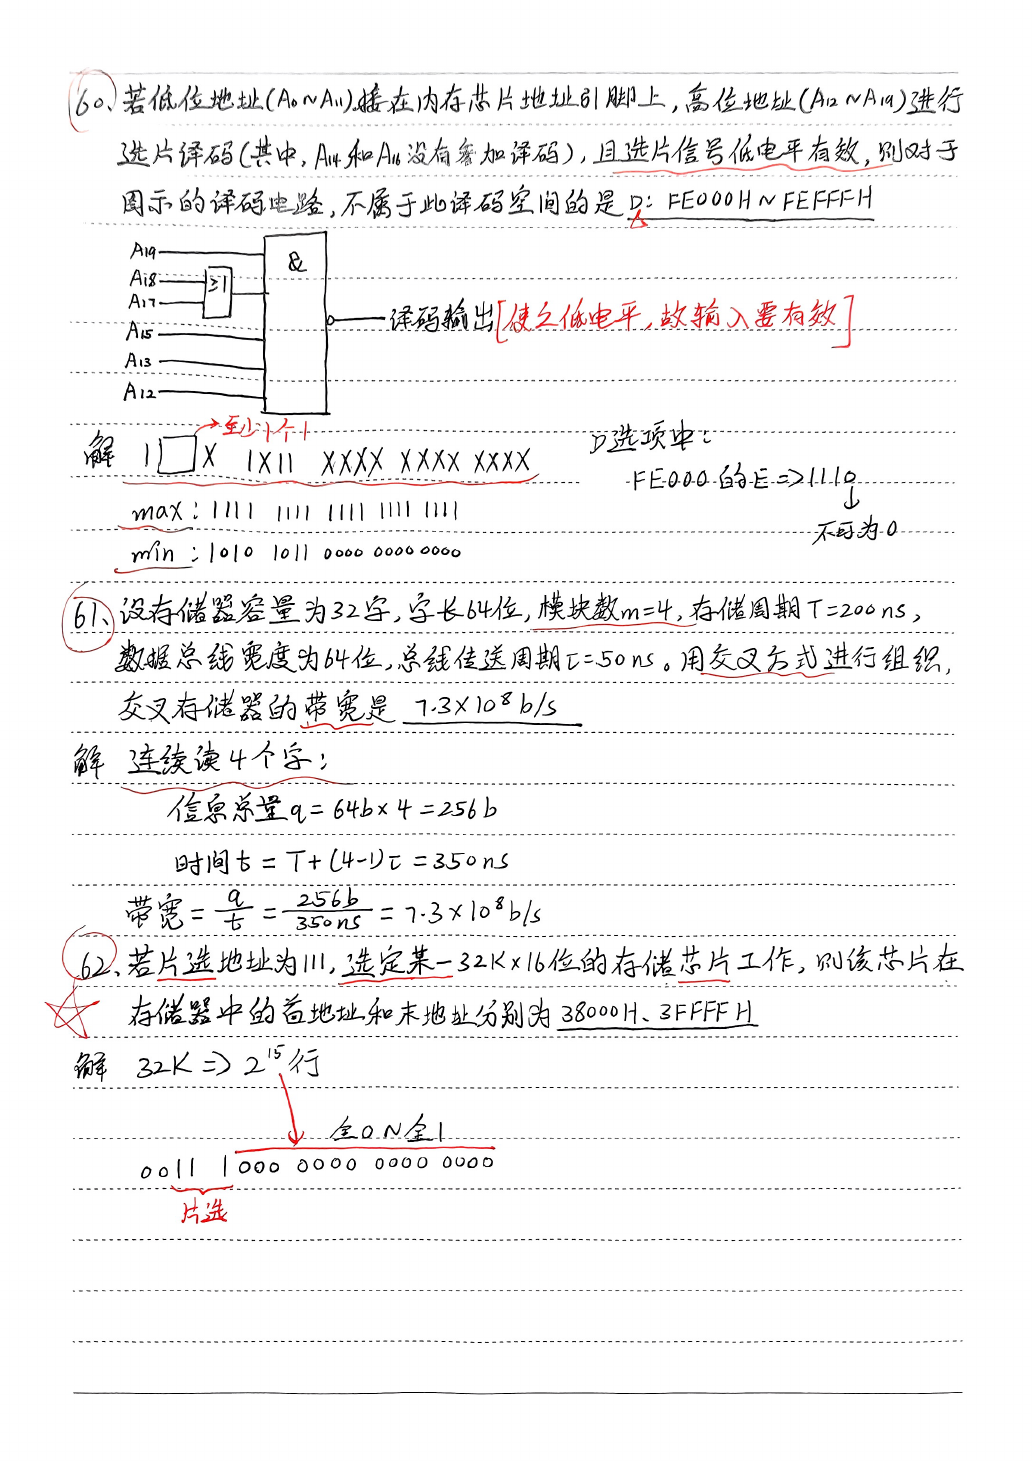 60、若低位地址(A0~A11)接在内存芯片地址引脚上,高位地址(A12~A19)进行
选片译码(其中,A14和A16没有参加译码),且选片信号低电平有效,则对于
图示的译码电路,不属于此译码空间的是 D: FE000H~FEFFFH
A19
A18
A17
A15
A13
A12
≥1
&
译码输出[使之低电平,故输入要有效]
至少1个1
解 1□X 1X11 XXXX XXXX XXXX
max: 1111 1111 1111 1111 1111
min: 1010 1011 0000 0000 0000
D选项中:
FE000的E=>1110
不可为0
61、设存储器容量为32字,字长64位,模块数m=4,存储周期T=200ns,
数据总线宽度为64位,总线传送周期τ=50ns。用交叉方式进行组织,
交叉存储器的带宽是 7.3×10⁸b/s
解 连续读4个字:
信息总量q=64b×4=256b
时间t=T+(4-1)τ=350ns
带宽=q/t=256b/350ns=7.3×10⁸b/s
62、若片选地址为111,选定某一32K×16位的存储芯片工作,则该芯片在
存储器中的首地址和末地址分别为 38000H、3FFFFH
解 32K=>2¹⁵行
全0~全1
0011 1000 0000 0000 0000
片选